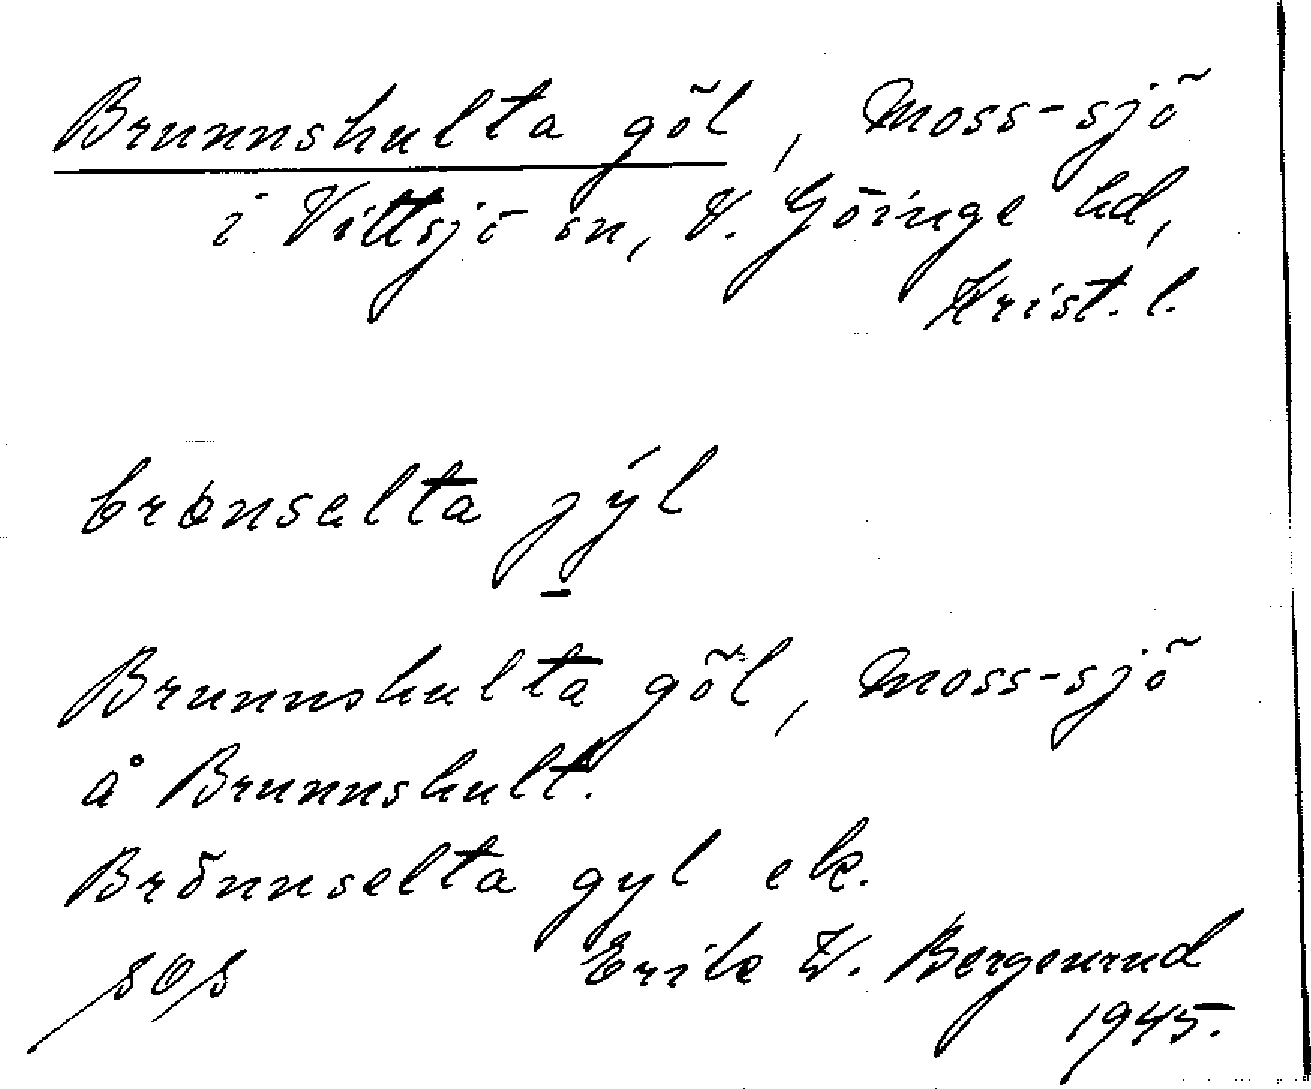 Brunnshulta göl, Moss-sjö
i Vittsjö sn, V. Göinge hd,
Krist. l.
brønselta jýl
Brunnshulta göl, Moss-sjö
å Brunnshult.
Brönnselta gyl ek.
Erik W. Bergenrud
1945.